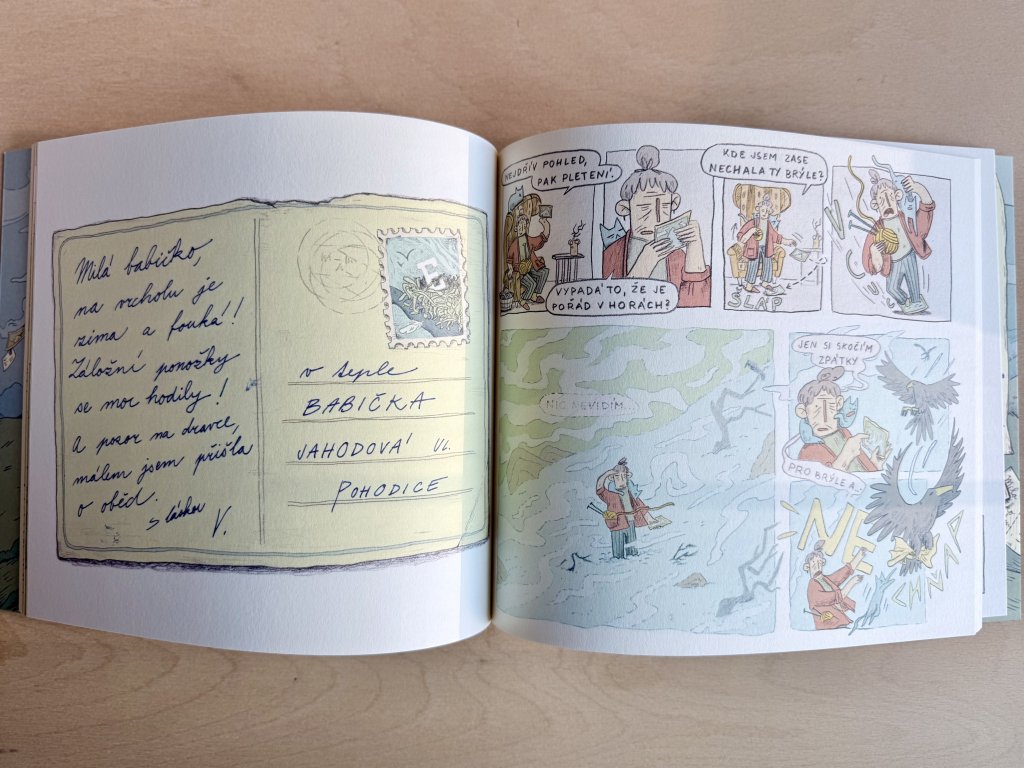 Milá babičko,
na vrcholu je
zima a fouká!
Záložní ponožky
se moc hodily!
A pozor na dravce,
málem jsem přišla
o oběd.
S láskou
V.
v teple
BABIČKA
JAHODOVÁ UL.
POHODICE
NEJDŘÍV POHLED,
PAK PLETENÍ.
VYPADÁ TO, ŽE JE
POŘÁD V HORÁCH?
KDE JSEM ZASE
NECHALA TY BRÝLE?
ŠLÁP
NIC NEVIDÍM...
JEN SI SKOČÍM
ZPÁTKY
PRO BRÝLE A...
NE
CHŇAP